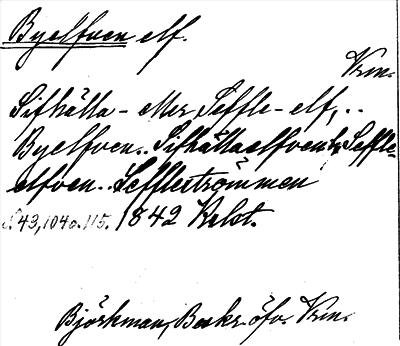 Byelfven elf.
Vrm.
Sifhälla- eller Seffle-elf, ..
Byelfven.. Sifhällaelfven l. Seffle-
elfven.. Seffleströmmen
s. 43, 104 o. 115. 1842 Relat.
Björkman, Beskr. öfv. Vrm.